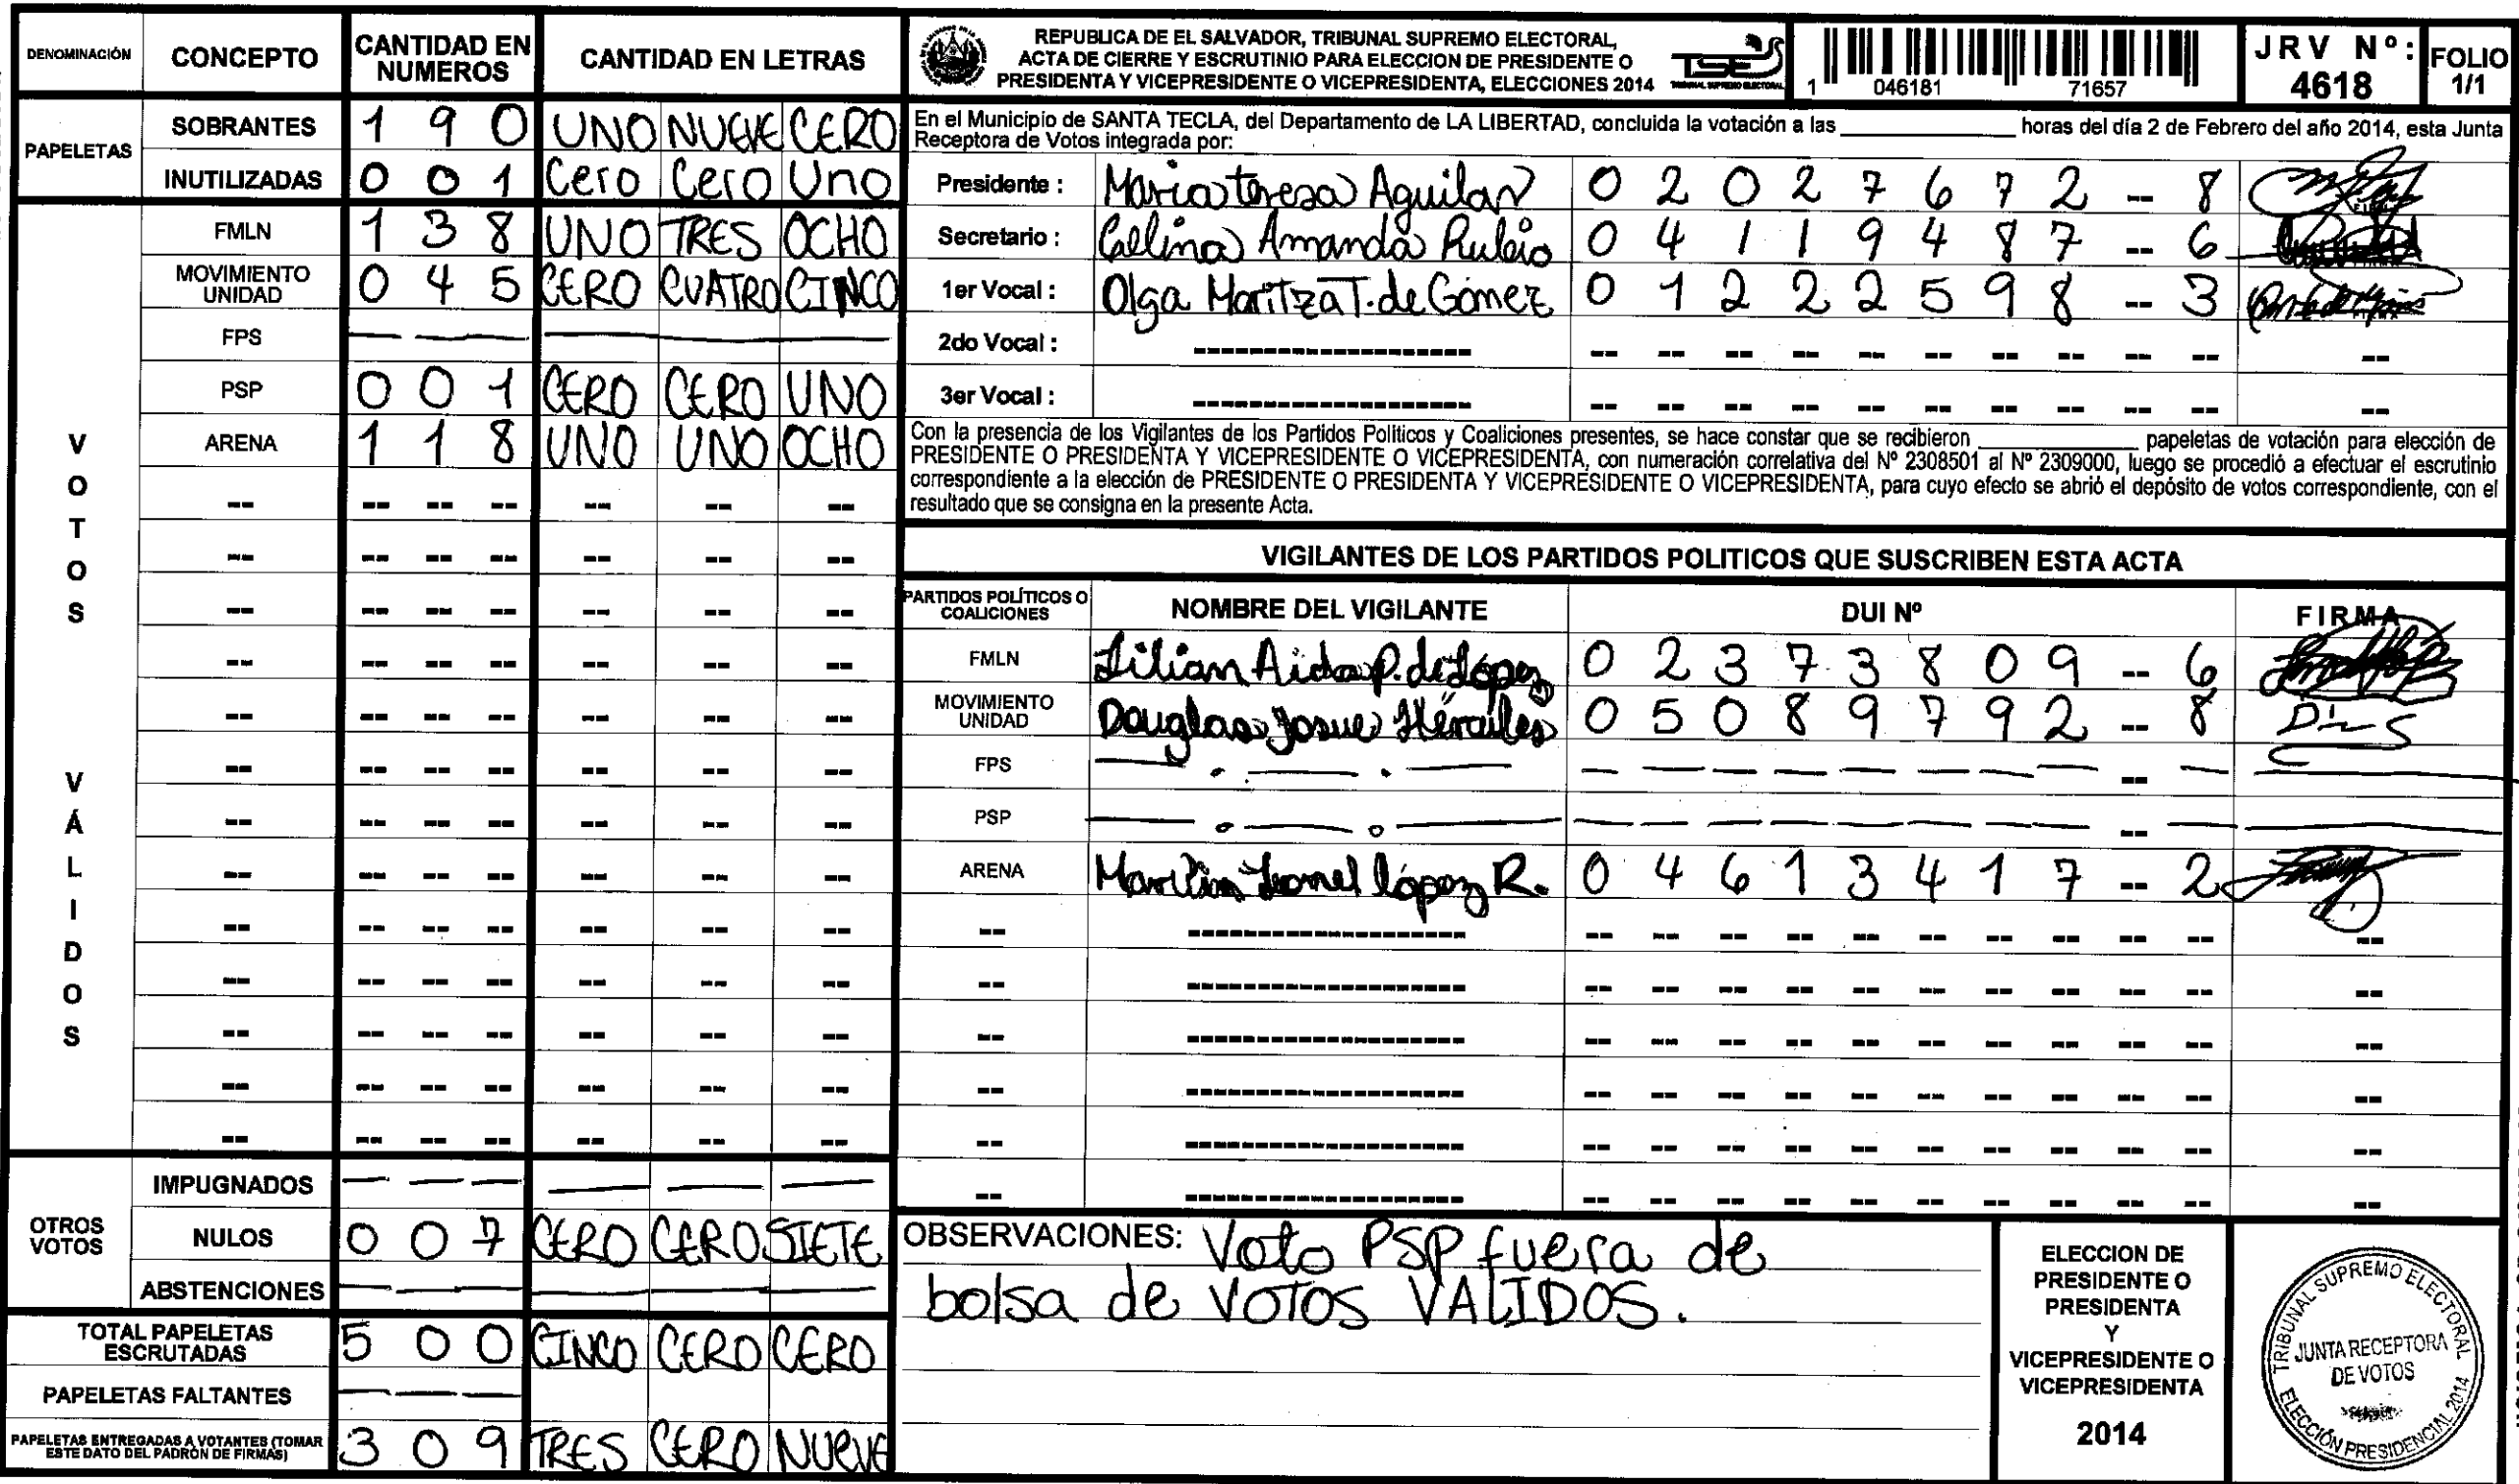 DENOMINACIÓN CONCEPTO CANTIDAD EN NUMEROS CANTIDAD EN LETRAS
PAPELETAS
SOBRANTES 1 9 0 UNO NUEVE CERO
INUTILIZADAS 0 0 1 Cero Cero Uno
VOTOS VÁLIDOS
FMLN 1 3 8 UNO TRES OCHO
MOVIMIENTO UNIDAD 0 4 5 CERO CUATRO CINCO
FPS — — — —
PSP 0 0 1 CERO CERO UNO
ARENA 1 1 8 UNO UNO OCHO
OTROS VOTOS
IMPUGNADOS — — — — — —
NULOS 0 0 7 CERO CERO SIETE
ABSTENCIONES — — — —
TOTAL PAPELETAS ESCRUTADAS 5 0 0 CINCO CERO CERO
PAPELETAS FALTANTES — — —
PAPELETAS ENTREGADAS A VOTANTES (TOMAR ESTE DATO DEL PADRÓN DE FIRMAS) 3 0 9 TRES CERO NUEVE
REPUBLICA DE EL SALVADOR, TRIBUNAL SUPREMO ELECTORAL,
ACTA DE CIERRE Y ESCRUTINIO PARA ELECCION DE PRESIDENTE O
PRESIDENTA Y VICEPRESIDENTE O VICEPRESIDENTA, ELECCIONES 2014
TSE
TRIBUNAL SUPREMO ELECTORAL
1 046181 71657
JRV Nº: 4618
FOLIO 1/1
En el Municipio de SANTA TECLA, del Departamento de LA LIBERTAD, concluida la votación a las ____ horas del día 2 de Febrero del año 2014, esta Junta
Receptora de Votos integrada por:
Presidente : Maria teresa Aguilar 0 2 0 2 7 6 7 2 -- 8
Secretario : Celina Amanda Rubio 0 4 1 1 9 4 8 7 -- 6
1er Vocal : Olga Maritza T. de Gómez 0 1 2 2 2 5 9 8 -- 3
2do Vocal :
3er Vocal :
Con la presencia de los Vigilantes de los Partidos Politicos y Coaliciones presentes, se hace constar que se recibieron ____ papeletas de votación para elección de
PRESIDENTE O PRESIDENTA Y VICEPRESIDENTE O VICEPRESIDENTA, con numeración correlativa del Nº 2308501 al Nº 2309000, luego se procedió a efectuar el escrutinio
correspondiente a la elección de PRESIDENTE O PRESIDENTA Y VICEPRESIDENTE O VICEPRESIDENTA, para cuyo efecto se abrió el depósito de votos correspondiente, con el
resultado que se consigna en la presente Acta.
VIGILANTES DE LOS PARTIDOS POLITICOS QUE SUSCRIBEN ESTA ACTA
PARTIDOS POLÍTICOS O COALICIONES NOMBRE DEL VIGILANTE DUI Nº FIRMA
FMLN Lilian Aida P. de López 0 2 3 7 3 8 0 9 -- 6
MOVIMIENTO UNIDAD Douglas Josue Hércules 0 5 0 8 9 7 9 2 -- 8
FPS
PSP
ARENA Leonel López R. 0 4 6 1 3 4 1 7 -- 2
OBSERVACIONES: Voto PSP fuera de
bolsa de VOTOS VALIDOS.
ELECCION DE
PRESIDENTE O
PRESIDENTA
Y
VICEPRESIDENTE O
VICEPRESIDENTA
2014
TRIBUNAL SUPREMO ELECTORAL
JUNTA RECEPTORA
DE VOTOS
ELECCIÓN PRESIDENCIAL 2014